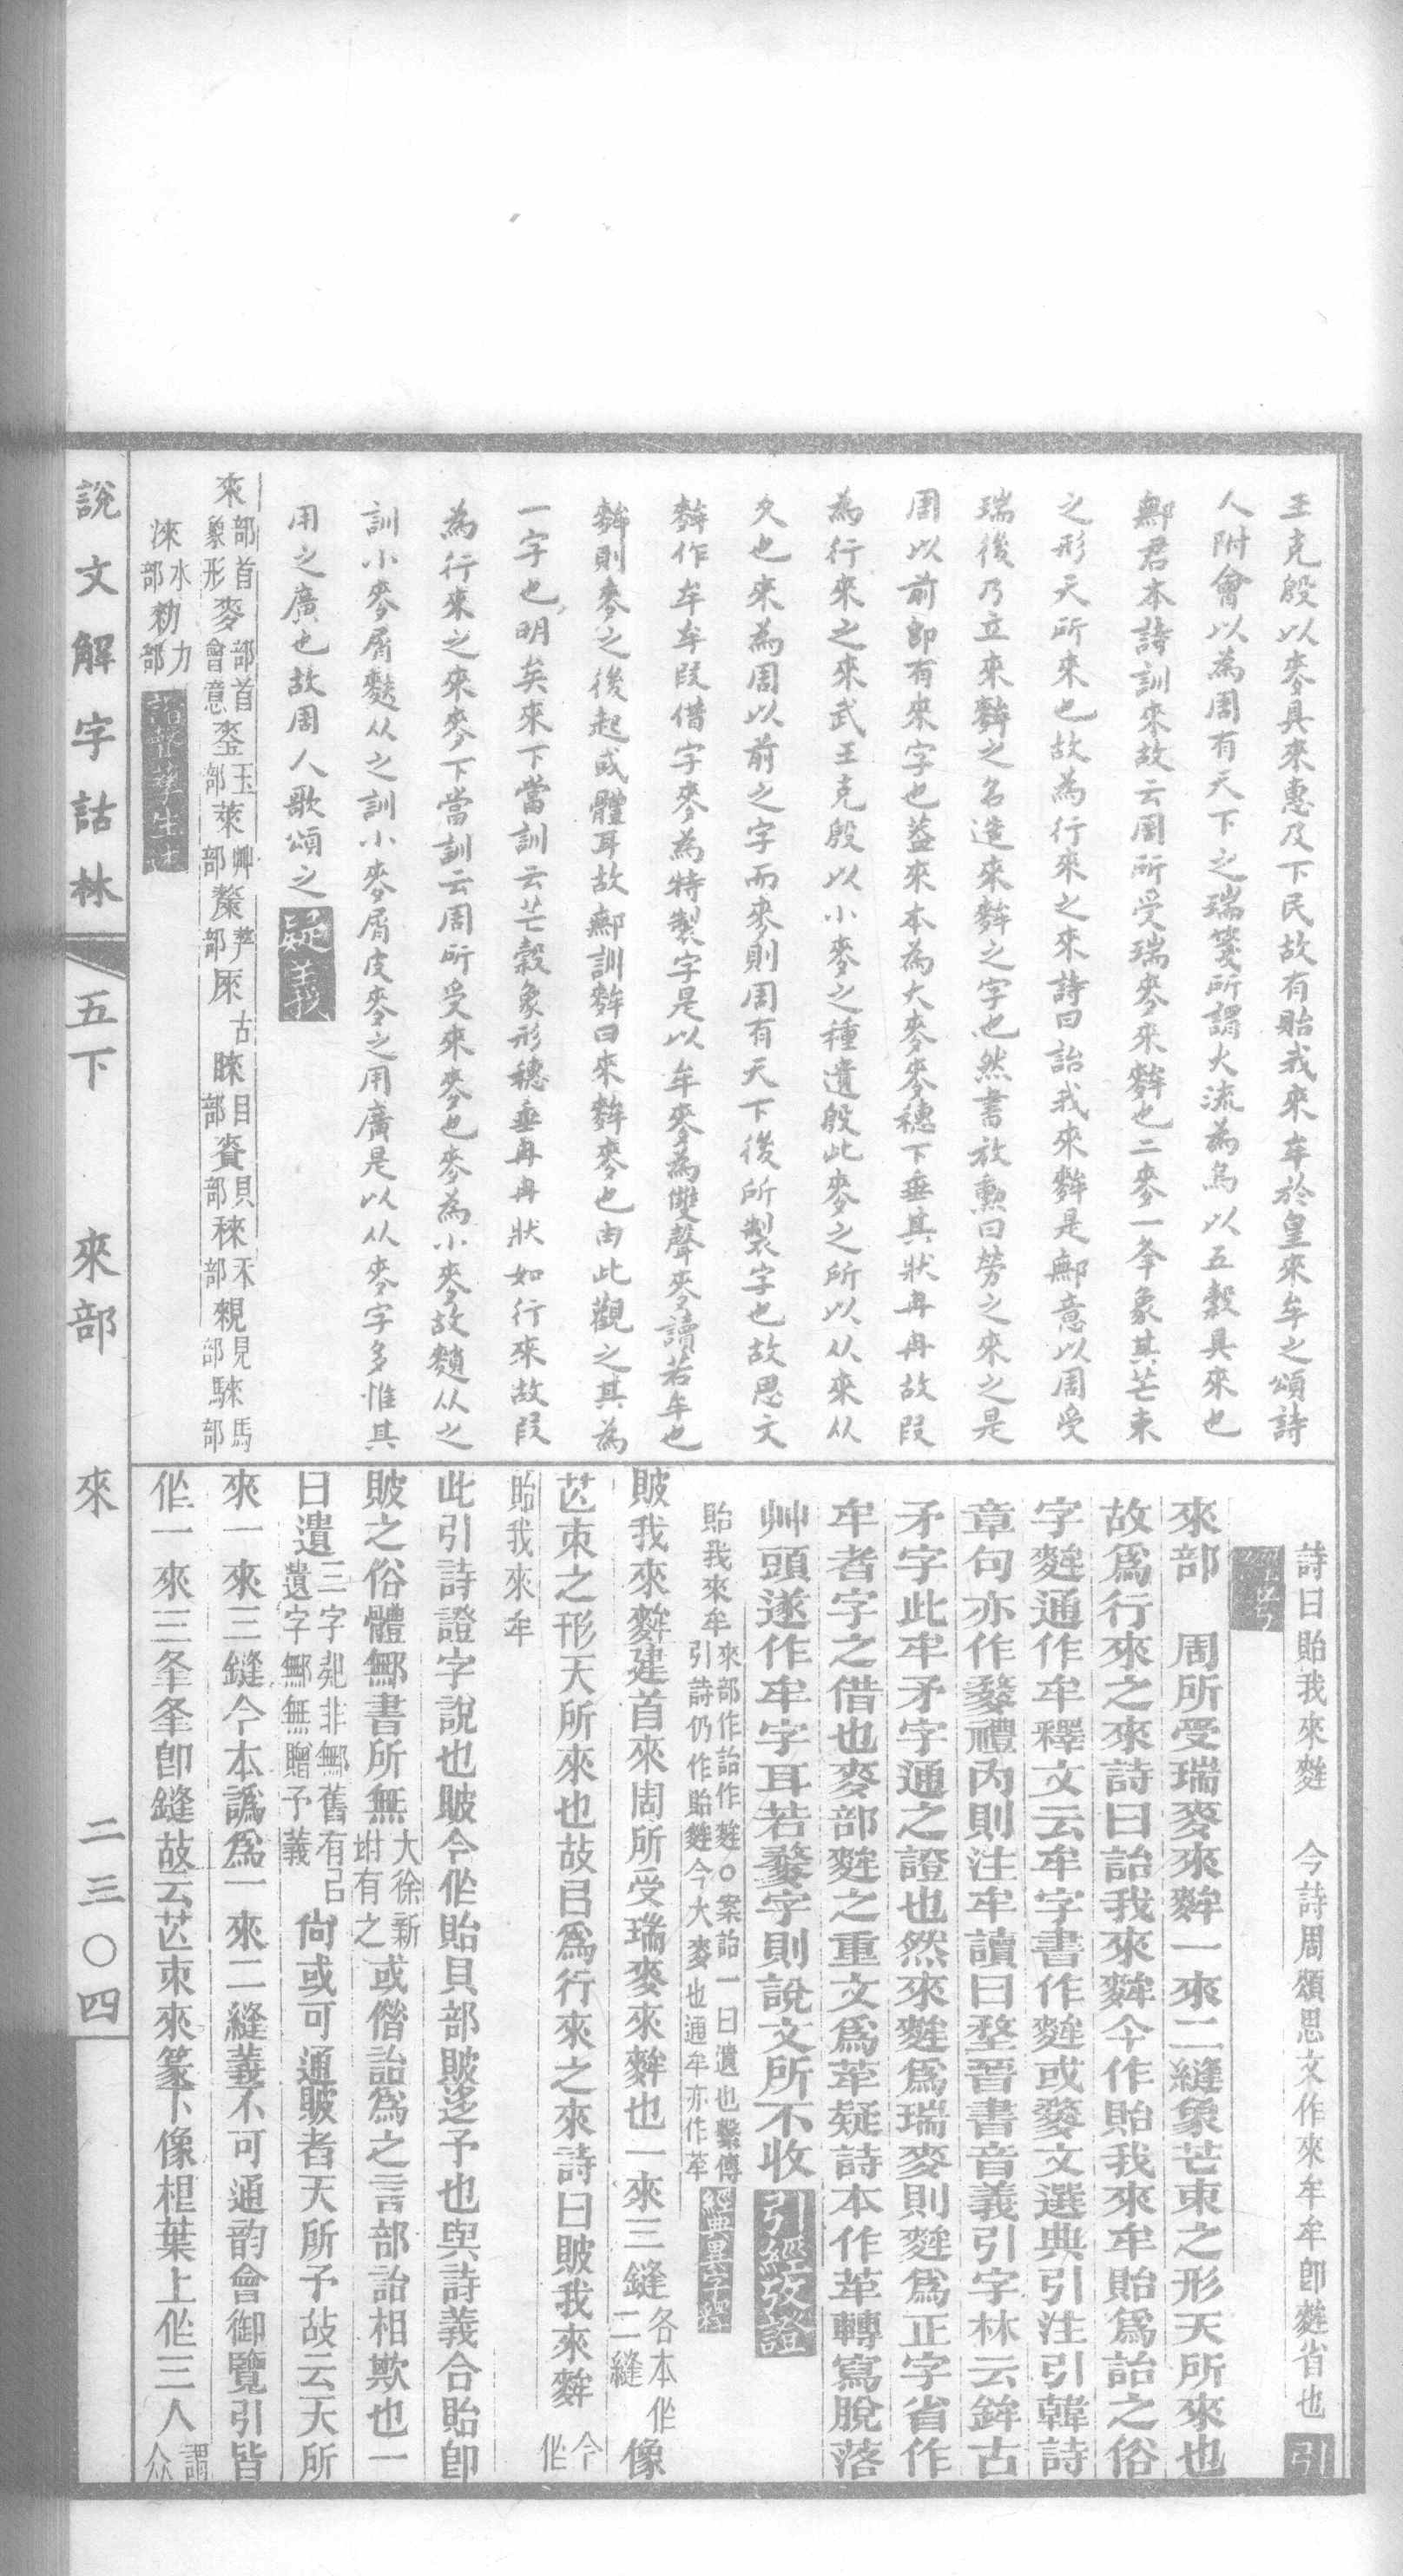 王克殷以麥具來惠及下民故有貽我來牟於皇來牟之頌詩
人附會以為周有天下之瑞箋所謂火流為烏以五穀具來也
鄦君本詩訓來故云周所受瑞麥來麰也二麥一夆象其芒朿
之形天所來也故為行來之來詩曰詒我來麰是鄦意以周受
瑞後乃立來麰之名造來麰之字也然書放勲曰勞之來之是
周以前卽有來字也葢來本為大麥麥穗下垂其狀冉冉故叚
為行來之來武王克殷以小麥之種遺殷此麥之所以从來从
夊也來為周以前之字而麥則周有天下後所製字也故思文
麰作牟牟叚借字麥為特製字是以牟麥為雙聲麥讀若牟也
麰則麥之後起或體耳故鄦訓麰曰來麰麥也由此觀之其為
一字也明矣來下當訓云芒穀象形穗垂冉冉狀如行來故叚
為行來之來麥下當訓云周所受來麥也麥為小麥故䵂从之
訓小麥屑麩从之訓小麥屑皮麥之用廣是以从麥字多惟其
用之廣也故周人歌頌之疑義
來部首象形麥部首會意玉部萊艸部部古睞目部賚貝部秾禾部覩見部騋馬部
淶水部勑力部諧聲孳生述
詩曰貽我來麰 今詩周頌思文作來牟牟卽麰省也引
經考
來部 周所受瑞麥來麰一來二縫象芒朿之形天所來也
故爲行來之來詩曰詒我來麰今作貽我來牟貽爲詒之俗
字麰通作牟釋文云牟字書作麰或䴺文選典引注引韓詩
章句亦作䴺禮內則注牟讀曰堥晉書音義引字林云鉾古
矛字此牟矛字通之證也然來麰爲瑞麥則麰爲正字省作
牟者字之借也麥部麰之重文爲䓮疑詩本作䓮轉寫脫落
艸頭遂作牟字耳若䴺字則說文所不收引經攷證
貽我來牟來部作詒作麰○案詒一曰遺也繫傳引詩仍作貽麰今大麥也通牟亦作䓮經典異字釋
貱我來麰建首來周所受瑞麥來麰也一來三鏠各本作二縫像
芒朿之形天所來也故㠯爲行來之來詩曰貱我來麰今作
貽我來牟
此引詩證字說也貱今作貽貝部貱迻予也與詩義合貽卽
貱之俗體鄦書所無大徐新坿有之或僭詒爲之言部詒相欺也一
曰遺三字𠨘非鄦舊有㠯遺字鄦無贈予義尙或可通貱者天所予故云天所
來一來三鏠今本譌爲一來二縫義不可通韵會御覽引皆
作一來三夆夆卽鏠故云芒朿來篆下像柤葉上作三人謂众
說文解字詁林 五下 來部 來 二三○四